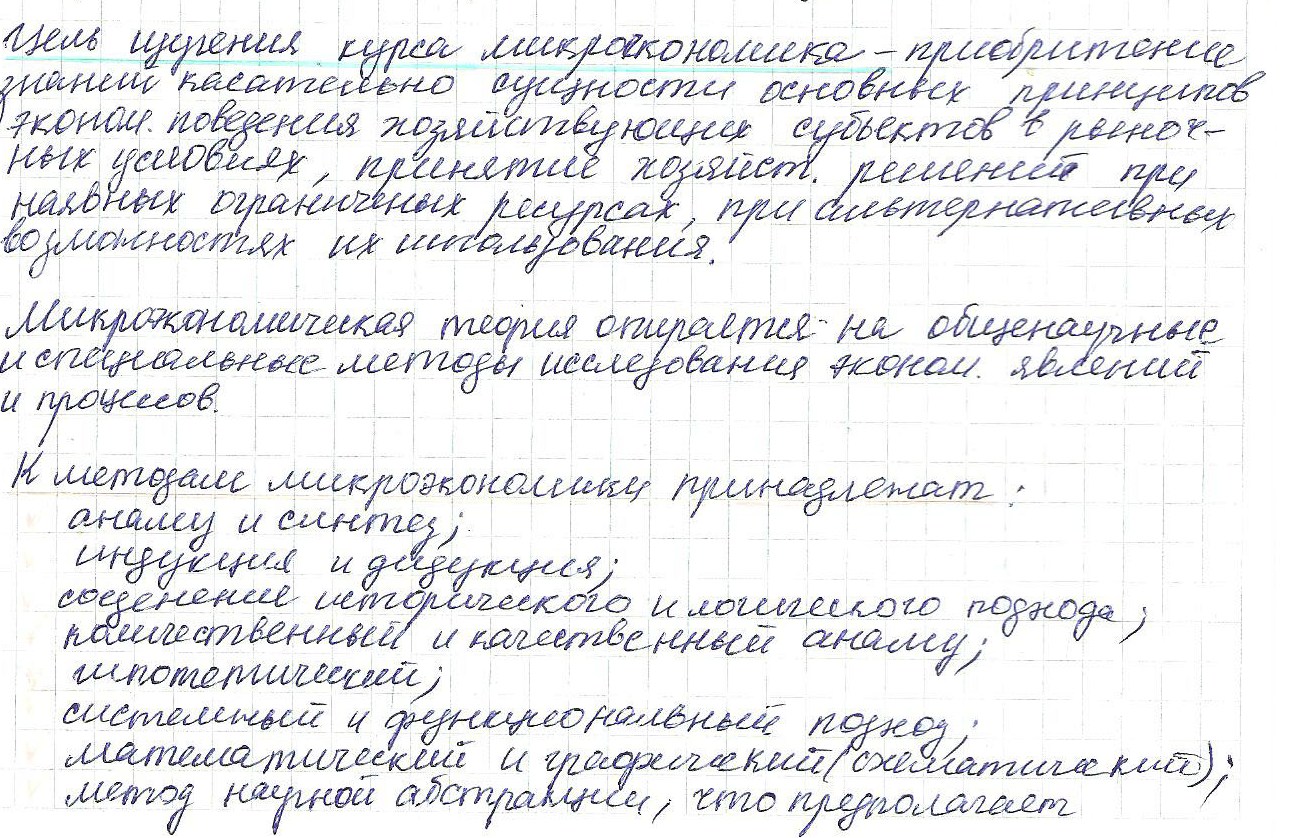 Цель изучения курса микроэкономика – приобритение
знаний касательно сущности основных принципов
эконом. поведения хозяйствующих субъектов в рыноч-
ных условиях, принятие хозяйст. решений при
наявных ограниченых ресурсах, при альтернативных
возможностях их использования.
Микроэкономическая теория опирается на общенаучные
и специальные методы исследования эконом. явлений
и процессов.
К методам микроэкономики принадлежат:
анализ и синтез;
индукция и дидукция;
соеденение исторического и логического подхода;
количественный и качественный анализ;
гипотетический;
системный и функциональный подход;
математический и графический (схематический);
метод научной абстракции, что предполагает